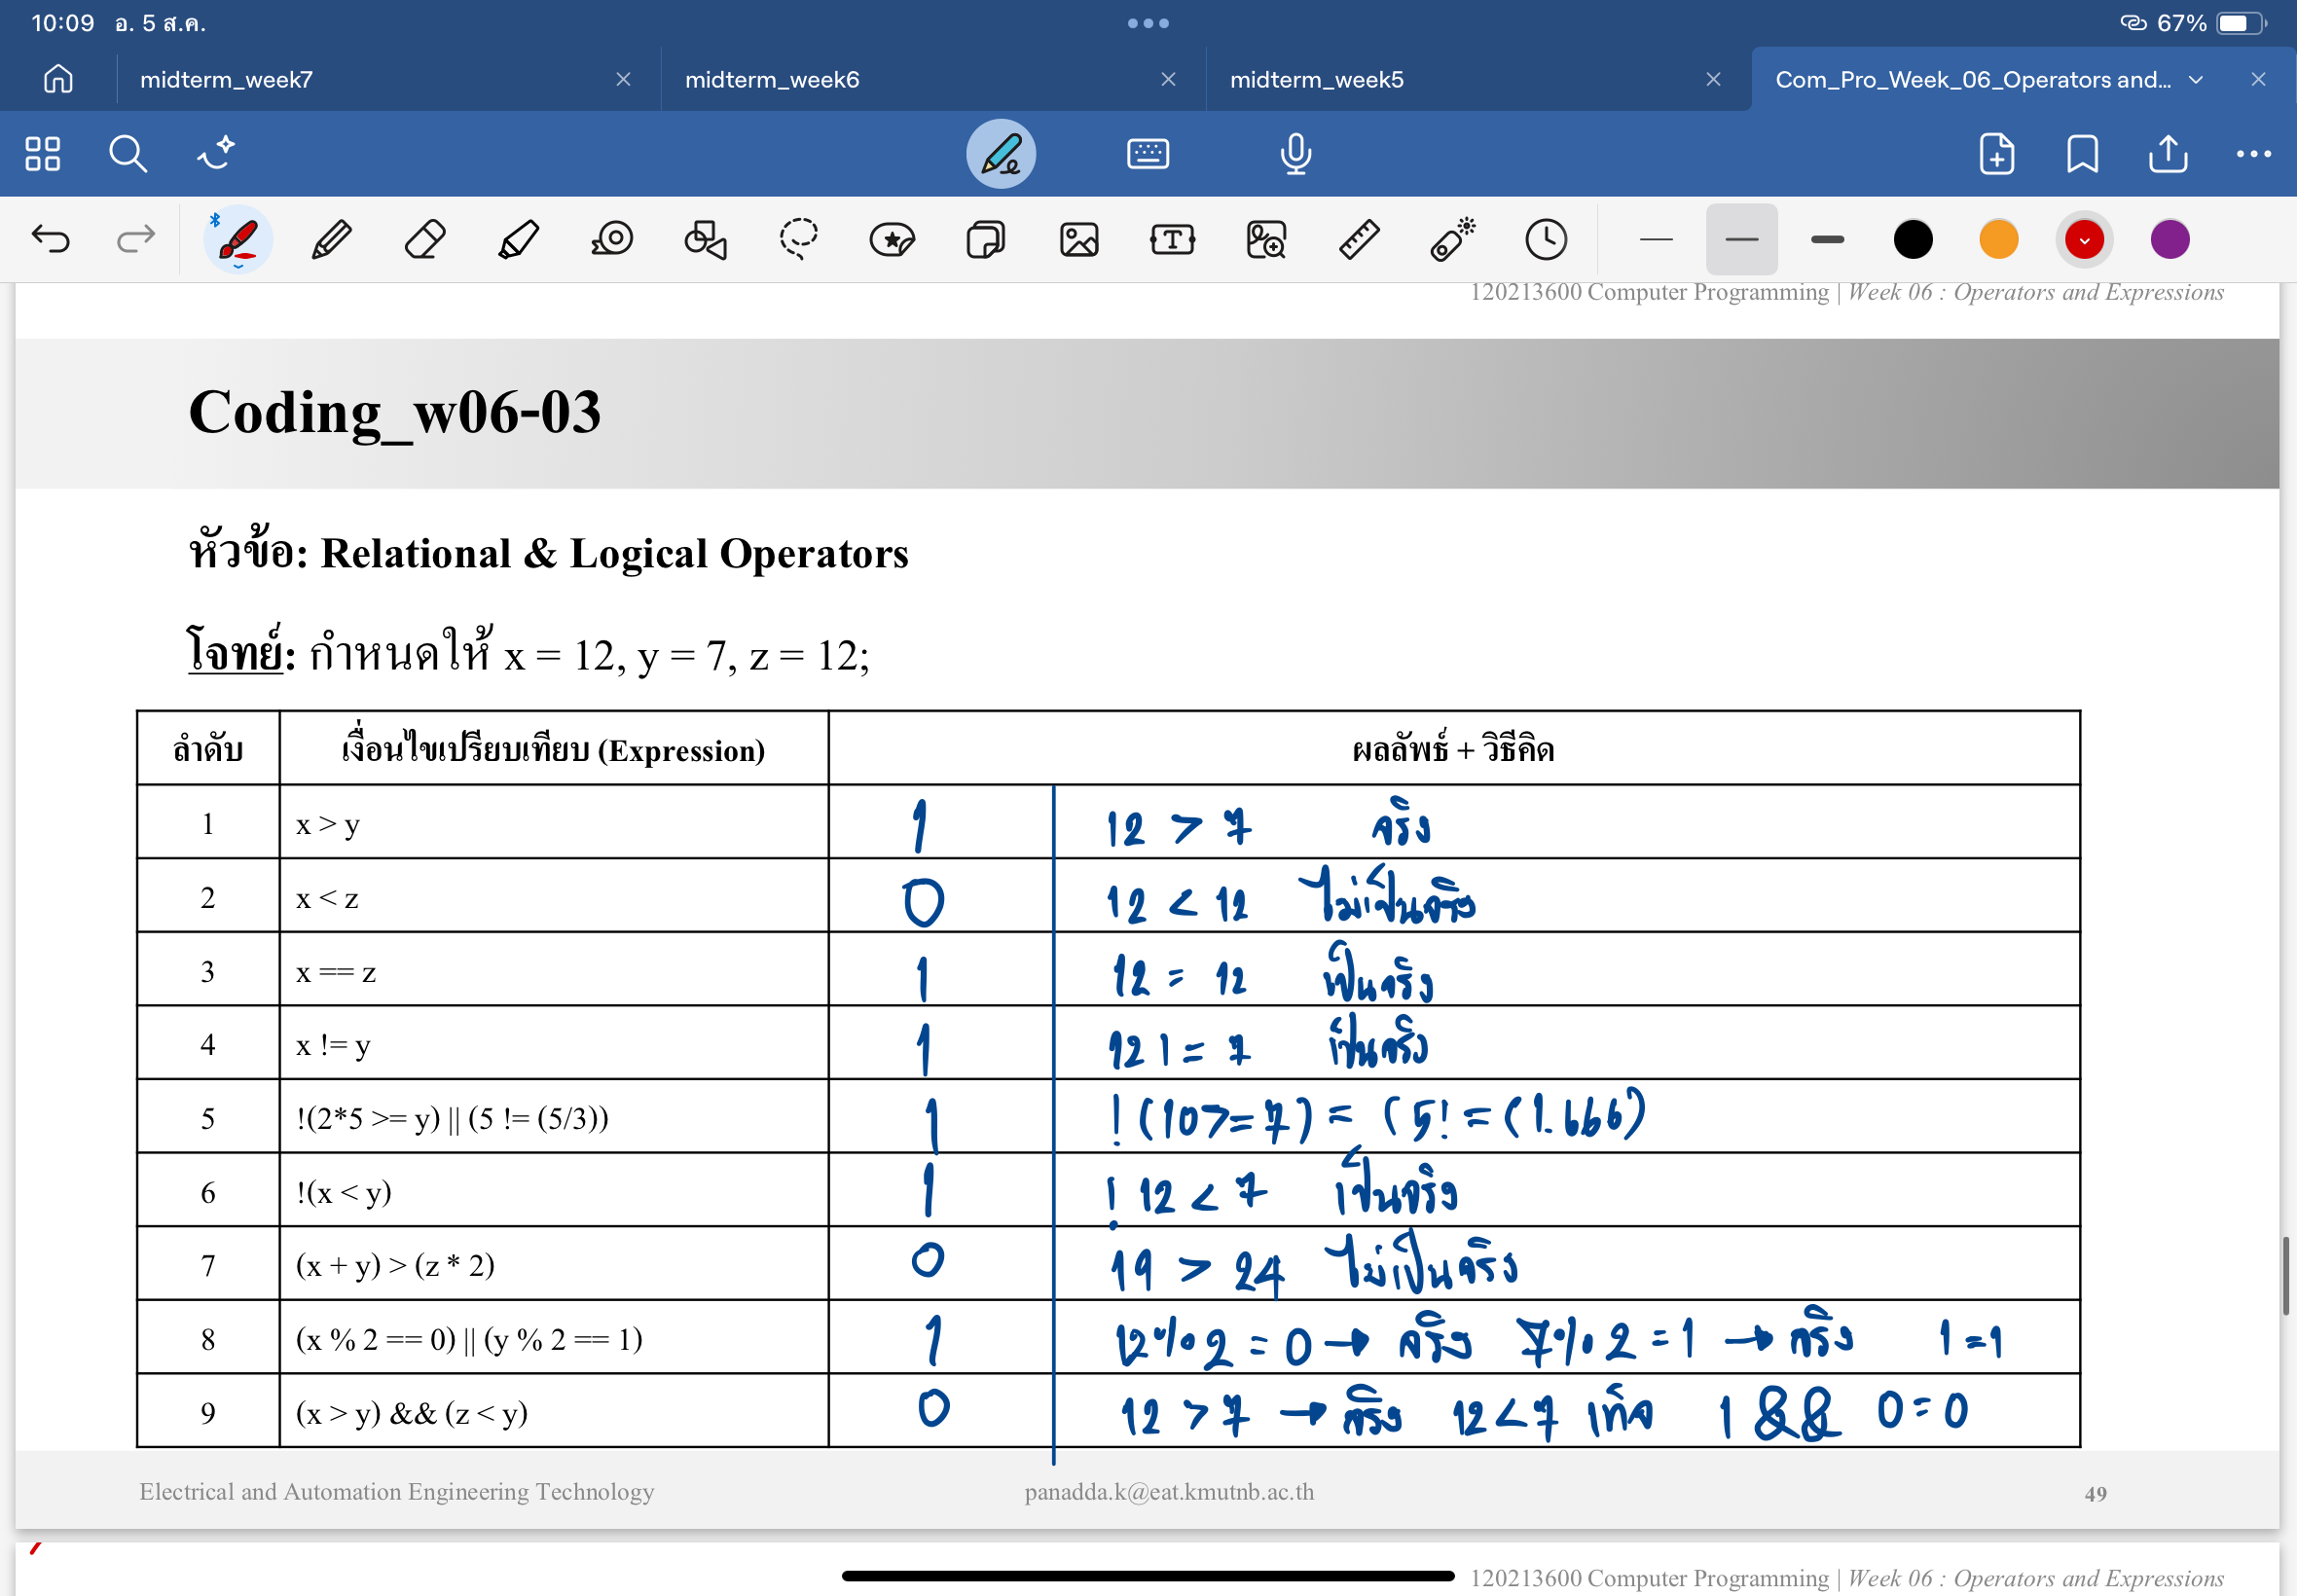 10:09 อ. 5 ส.ค. 67%
midterm_week7 midterm_week6 midterm_week5 Com_Pro_Week_06_Operators and...
120213600 Computer Programming | Week 06 : Operators and Expressions
Coding_w06-03
หัวข้อ: Relational & Logical Operators
โจทย์: กำหนดให้ x = 12, y = 7, z = 12;
ลำดับ เงื่อนไขเปรียบเทียบ (Expression) ผลลัพธ์ + วิธีคิด
1 x > y 1 12 > 7 จริง
2 x < z 0 12 < 12 ไม่เป็นจริง
3 x == z 1 12 = 12 เป็นจริง
4 x != y 1 12 != 7 เป็นจริง
5 !(2*5 >= y) || (5 != (5/3)) 1 !(10>=7) = (5! = (1.666)
6 !(x < y) 1 ! 12 < 7 เป็นจริง
7 (x + y) > (z * 2) 0 19 > 24 ไม่เป็นจริง
8 (x % 2 == 0) || (y % 2 == 1) 1 12%2 = 0 → จริง 7%2 = 1 → จริง 1=1
9 (x > y) && (z < y) 0 12 > 7 → จริง 12<7 เท็จ 1 && 0=0
Electrical and Automation Engineering Technology panadda.k@eat.kmutnb.ac.th 49
120213600 Computer Programming | Week 06 : Operators and Expressions